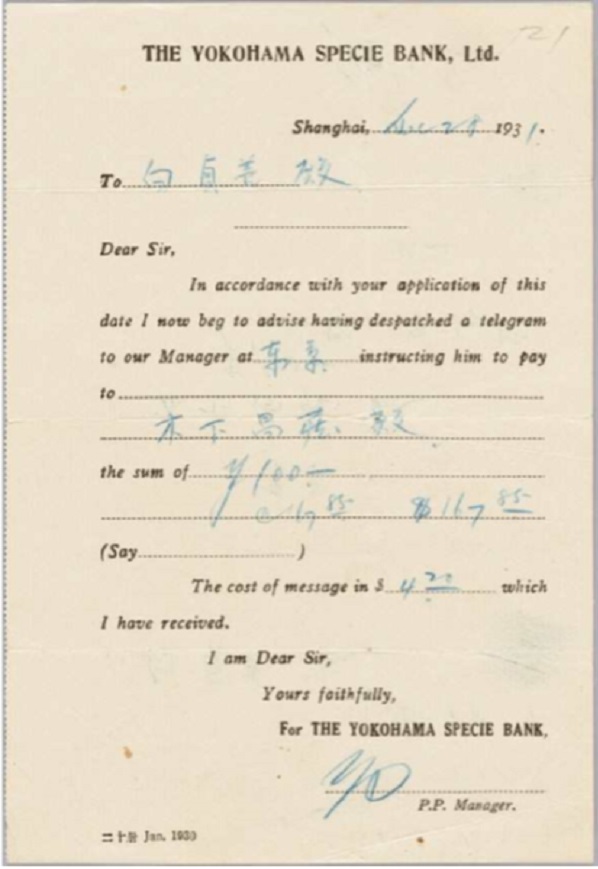 21
THE YOKOHAMA SPECIE BANK, Ltd.
Shanghai, Dec 28 1931.
To 白貞 殿
Dear Sir,
In accordance with your application of this
date I now beg to advise having despatched a telegram
to our Manager at 东京 instructing him to pay
to
木下 殿
the sum of ¥100
85 $167 85
(Say )
The cost of message in $ 4 20 which
I have received.
I am Dear Sir,
Yours faithfully,
For THE YOKOHAMA SPECIE BANK,
P.P. Manager.
Jan. 1930